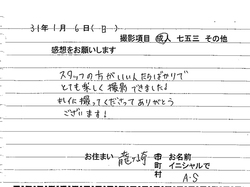 31年1月6日(日)
撮影項目 成人 七五三 その他
感想をお願いします
スタッフの方がいい人たちばかりで
とても楽しく撮影できました!
きれいに撮ってくださってありがとう
ございます!
お住まい 龍ヶ崎 市 お名前
町 イニシャルで
村 A.S